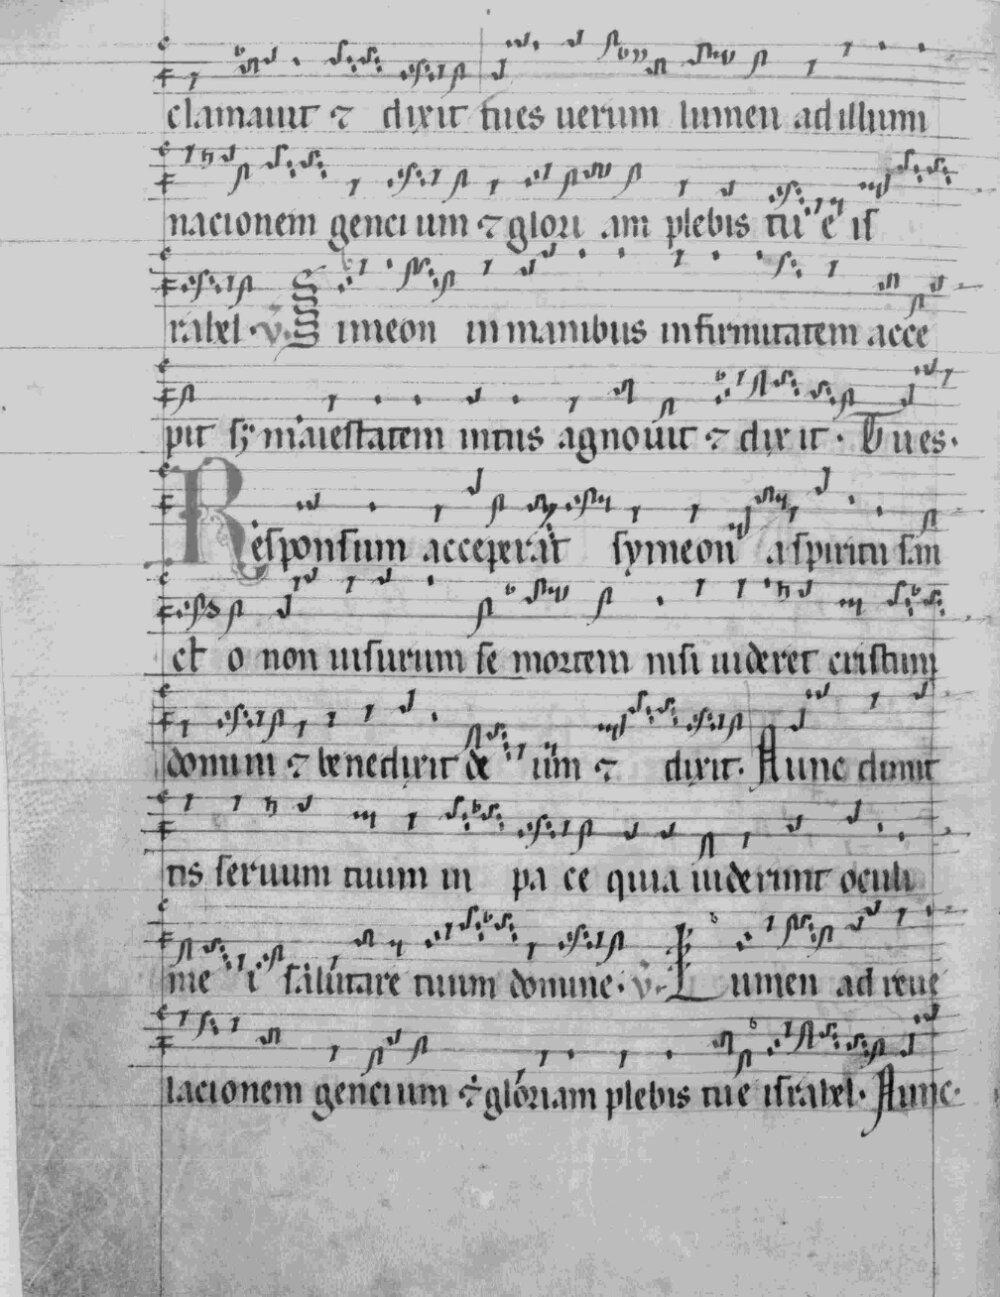 clamauit ⁊ dixit tu es uerum lumen ad illum
nacionem genci um ⁊ glori am plebis tu e is
rahel · v. Simeon in manibus infirmitatem acce
pit sꝫ maiestatem intus agnouit ⁊ dix it · Tu es ·
Responsum acceperat symeon a spiritu san
cto non uisurum se mortem nisi uideret cristum
domini ⁊ benedixit de um ⁊ dixit · Nunc dimit
tis seruum tuum in pa ce quia uiderunt oculi
me i salutare tuum domine · v. Lumen ad reue
lacionem genci um ⁊ gloriam plebis tue israhel · Nunc ·